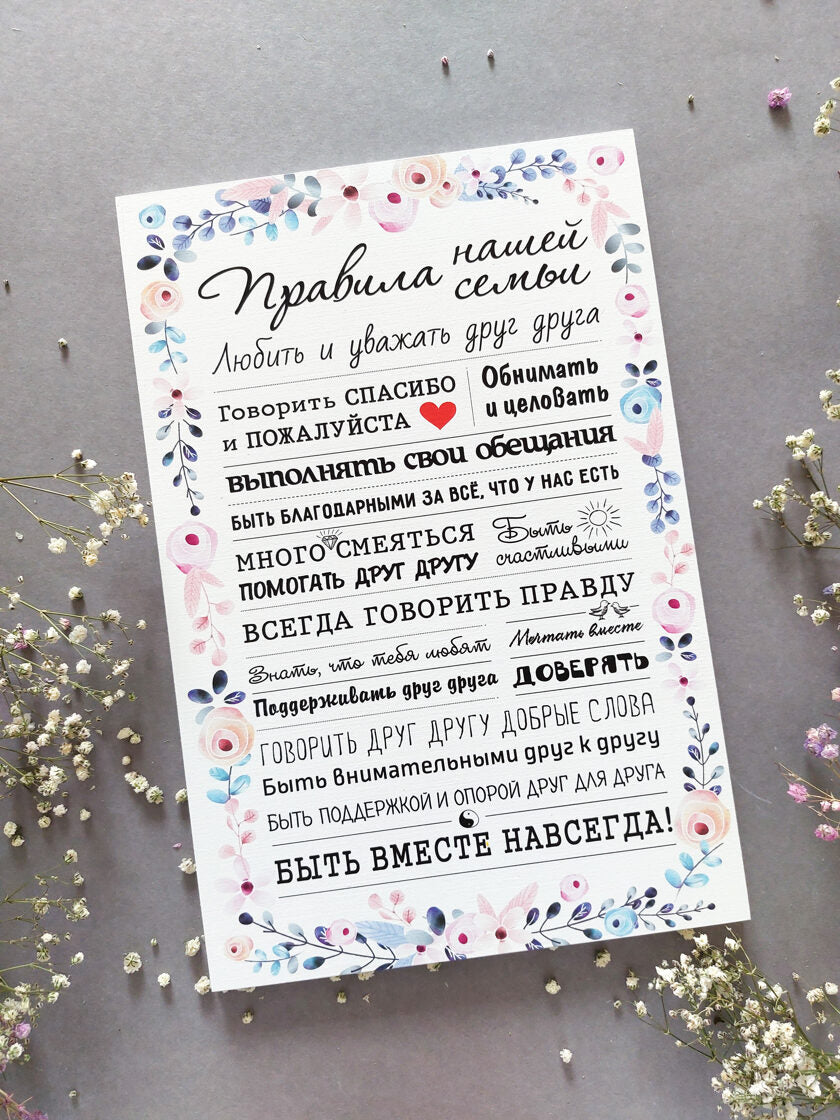 Правила нашей
семьи
Любить и уважать друг друга
Говорить СПАСИБО
и ПОЖАЛУЙСТА
Обнимать
и целовать
выполнять свои обещания
БЫТЬ БЛАГОДАРНЫМИ ЗА ВСЁ, ЧТО У НАС ЕСТЬ
МНОГО СМЕЯТЬСЯ
Быть
счастливыми
ПОМОГАТЬ ДРУГ ДРУГУ
ВСЕГДА ГОВОРИТЬ ПРАВДУ
Знать, что тебя любят
Мечтать вместе
Поддерживать друг друга
ДОВЕРЯТЬ
ГОВОРИТЬ ДРУГ ДРУГУ ДОБРЫЕ СЛОВА
Быть внимательными друг к другу
БЫТЬ ПОДДЕРЖКОЙ И ОПОРОЙ ДРУГ ДЛЯ ДРУГА
БЫТЬ ВМЕСТЕ НАВСЕГДА!